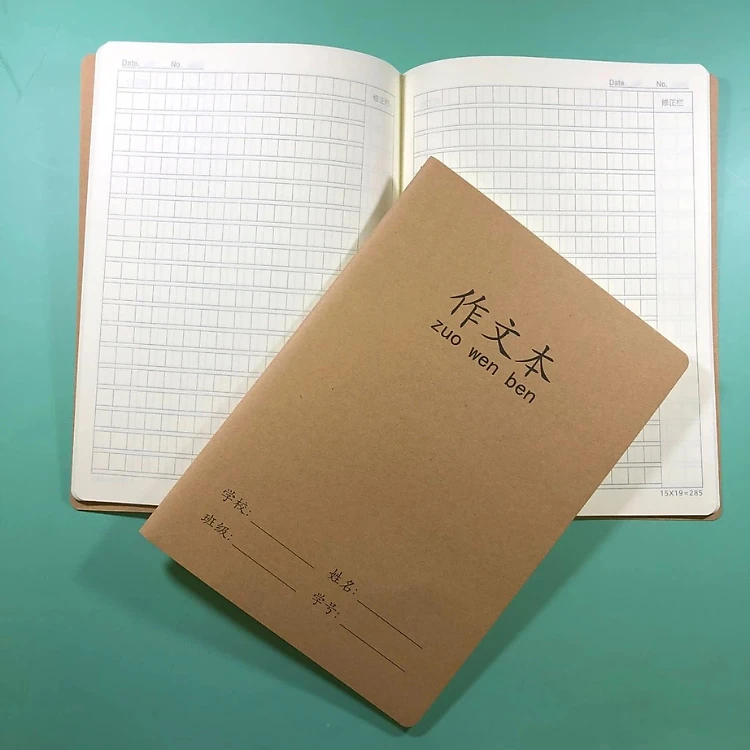 Date. No.
修正栏
Date. No.
修正栏
作文本
zuo wen ben
学校:
班级:
姓名:
学号:
15X19=285